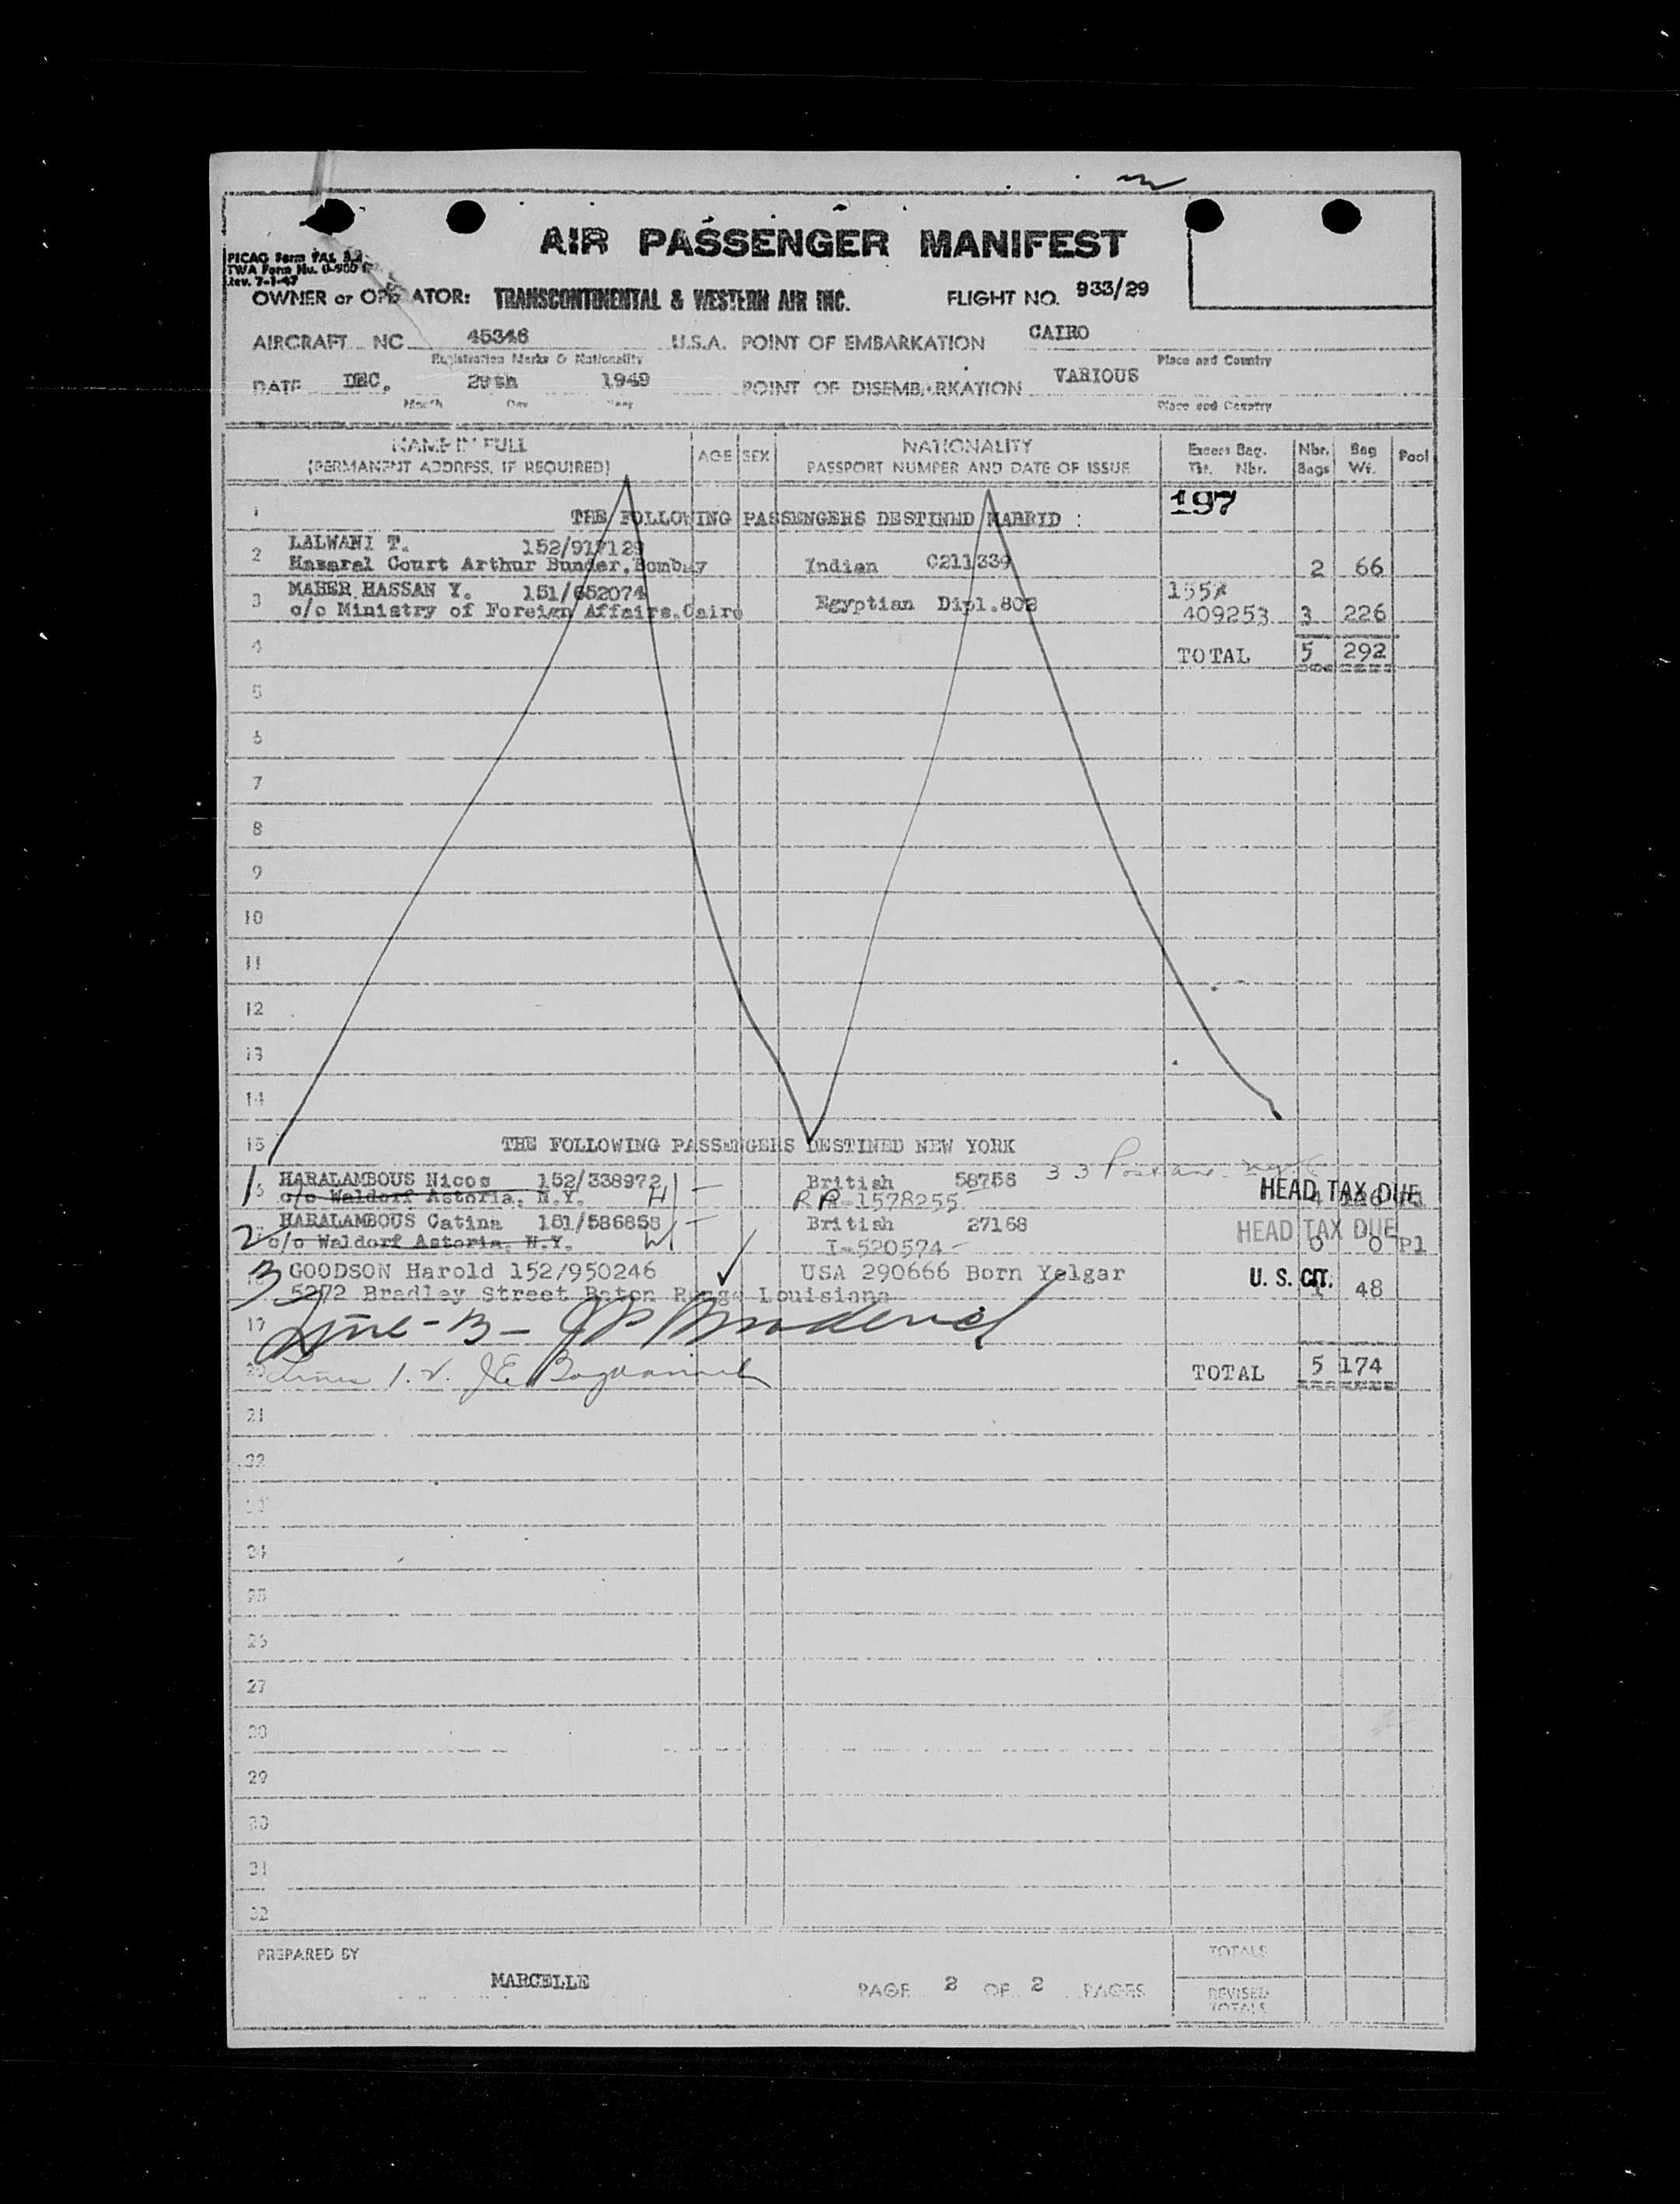 AIR PASSENGER MANIFEST
TWA Form No.
Rev. 7-1-47
OWNER or OPERATOR: TRANSCONTINENTAL & WESTERN AIR INC. FLIGHT NO. 933/29
AIRCRAFT NC 45346 U.S.A. POINT OF EMBARKATION CAIRO
Registration Marks & Nationality Place and Country
DATE DEC. 29th 1949 POINT OF DISEMBARKATION VARIOUS
Month Day Year Place and Country
NAME IN FULL AGE SEX NATIONALITY Excess Bag. Nbr. Bag Pool
(PERMANENT ADDRESS, IF REQUIRED) PASSPORT NUMBER AND DATE OF ISSUE Tkt. Nbr. Bags Wt.
197
1 THE FOLLOWING PASSENGERS DESTINED MADRID :
LALWANI T. 152/917129
2 Hazarel Court Arthur Bunder.Bombay Indian C211339 2 66
MAHER HASSAN Y. 151/652074 155%
3 c/o Ministry of Foreign Affairs.Cairo Egyptian Dipl.802 409253 3 226
4 TOTAL 5 292
5
6
7
8
9
10
11
12
13
14
15 THE FOLLOWING PASSENGERS DESTINED NEW YORK
1 HARALAMBOUS Nicos 152/338972 H British 58758 33
c/o Waldorf Astoria, N.Y. RP-1578255 HEAD TAX DUE
2 HARALAMBOUS Catina 151/586858 W British 27168 HEAD TAX DUE
c/o Waldorf Astoria, N.Y. I-520574 0 0 Pl
3 GOODSON Harold 152/950246 USA 290666 Born Yelgar U. S. CIT. 1 48
5272 Bradley Street Baton Rouge Louisiana
19 Line - 3 -
20 Lines 1. 2. J.E. TOTAL 5 174
21
22
23
24
25
26
27
28
29
30
31
32
PREPARED BY TOTALS
MARCELLE PAGE 2 OF 2 PAGES REVISED
TOTALS